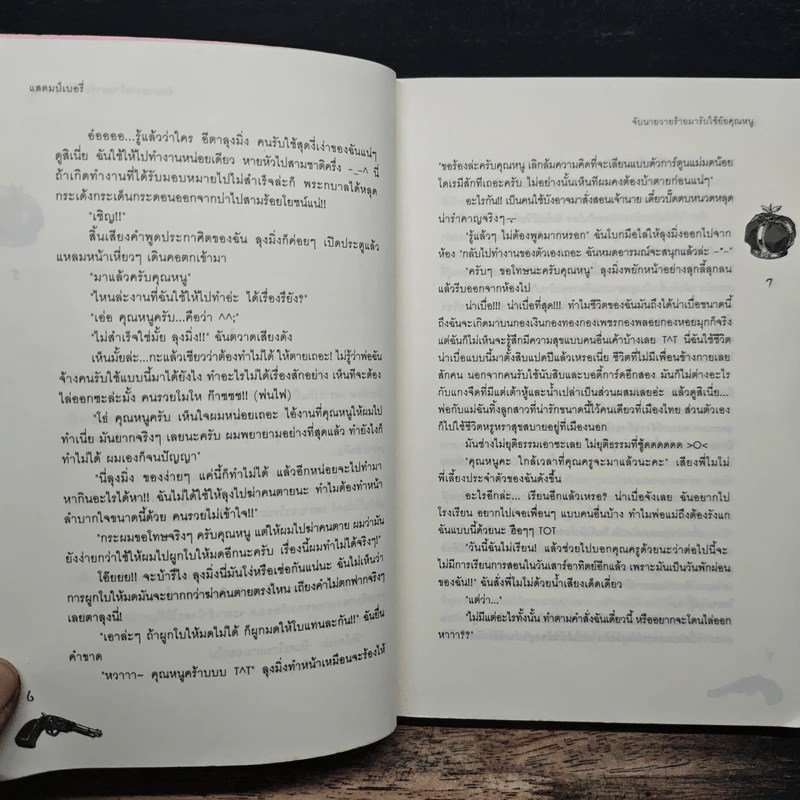 แสตมป์เบอรี่
อ๋ออออ...รู้แล้วว่าใคร อีตาลุงมิ่ง คนรับใช้สุดงี่เง่าของฉันแน่ๆ
ดูสิเนี่ย ฉันใช้ให้ไปทำงานหน่อยเดียว หายหัวไปสามชาติครึ่ง -_-^ นี่
ถ้าเกิดทำงานที่ได้รับมอบหมายไปไม่สำเร็จล่ะก็ พระกบาลได้หลุด
กระเด้งกระเด็นกระดอนออกจากบ่าไปสามร้อยโยชน์แน่!!
"เชิญ!!"
สิ้นเสียงคำพูดประกาศิตของฉัน ลุงมิ่งก็ค่อยๆ เปิดประตูแล้ว
แหลมหน้าเหี่ยวๆ เดินคอตกเข้ามา
"มาแล้วครับคุณหนู"
"ไหนล่ะงานที่ฉันใช้ให้ไปทำอ่ะ ได้เรื่องรึยัง?"
"เอ่อ คุณหนูครับ...คือว่า ^^;"
"ไม่สำเร็จใช่มั้ย ลุงมิ่ง!!" ฉันตวาดเสียงดัง
เห็นมั้ยล่ะ...กะแล้วเชียวว่าต้องทำไม่ได้ ให้ตายเถอะ! ไม่รู้ว่าพ่อฉัน
จ้างคนรับใช้แบบนี้มาได้ยังไง ทำอะไรไม่ได้เรื่องสักอย่าง เห็นทีจะต้อง
ไล่ออกซะล่ะมั้ง คนรวยโมโห ก๊าซซซ!! (พ่นไฟ)
"โธ่ คุณหนูครับ เห็นใจผมหน่อยเถอะ ไอ้งานที่คุณหนูให้ผมไป
ทำเนี่ย มันยากจริงๆ เลยนะครับ ผมพยายามอย่างที่สุดแล้ว ทำยังไงก็
ทำไม่ได้ ผมเองก็จนปัญญา"
"นี่ลุงมิ่ง ของง่ายๆ แค่นี้ก็ทำไม่ได้ แล้วอีกหน่อยจะไปทำมา
หากินอะไรได้ห๊า!! ฉันไม่ได้ใช้ให้ลุงไปฆ่าคนตายนะ ทำไมต้องทำหน้า
ลำบากใจขนาดนี้ด้วย คนรวยไม่เข้าใจ!!"
"กระผมขอโทษจริงๆ ครับคุณหนู แต่ให้ผมไปฆ่าคนตาย ผมว่ามัน
ยังง่ายกว่าใช้ให้ผมไปผูกโบให้มดอีกนะครับ เรื่องนี้ผมทำไม่ได้จริงๆ!"
โอ๊ยยย!! จะบ้ารึไง ลุงมิ่งนี่มันโง่หรือเซ่อกันแน่นะ ฉันไม่เห็นว่า
การผูกโบให้มดมันจะยากกว่าฆ่าคนตายตรงไหน เถียงคำไม่ตกฟากจริงๆ
เลยตาลุงนี่!
"เอาล่ะๆ ถ้าผูกโบให้มดไม่ได้ ก็ผูกมดให้โบแทนละกัน!!" ฉันยื่น
คำขาด
"หวาาา~ คุณหนูคร้าบบบ T^T" ลุงมิ่งทำหน้าเหมือนจะร้องไห้
6
จับนายวายร้ายมารับใช้ยัยคุณหนู
"ขอร้องล่ะครับคุณหนู เลิกล้มความคิดที่จะเลียนแบบตัวการ์ตูนแม่มดน้อย
โดเรมีสักทีเถอะครับ ไม่อย่างนั้นเห็นทีผมคงต้องบ้าตายก่อนแน่ๆ"
อะไรกัน!! เป็นคนใช้บังอาจมาสั่งสอนเจ้านาย เดี๋ยวปั๊ดตบหนวดหลุด
น่ารำคาญจริงๆ
"รู้แล้วๆ ไม่ต้องพูดมากหรอก" ฉันโบกมือไล่ให้ลุงมิ่งออกไปจาก
ห้อง "กลับไปทำงานของตัวเองเถอะ ฉันหมดอารมณ์จะสนุกแล้วล่ะ -"-"
"ครับๆ ขอโทษนะครับคุณหนู" ลุงมิ่งพยักหน้าอย่างลุกลี้ลุกลน
แล้วรีบออกจากห้องไป
น่าเบื่อ!!! น่าเบื่อที่สุด!!! ทำไมชีวิตของฉันมันถึงได้น่าเบื่อขนาดนี้
ถึงฉันจะเกิดมาบนกองเงินกองทองกองเพชรกองพลอยกองหอยมุกก็จริง
แต่ฉันก็ไม่เห็นจะรู้สึกมีความสุขแบบคนอื่นเค้าบ้างเลย T^T นี่ฉันใช้ชีวิต
น่าเบื่อแบบนี้มาตั้งสิบแปดปีแล้วเหรอเนี่ย ชีวิตที่ไม่มีเพื่อนข้างกายเลย
สักคน นอกจากคนรับใช้นับสิบและบอดี้การ์ดอีกสอง มันก็ไม่ต่างอะไร
กับแกงจืดที่มีแต่เต้าหู้และน้ำเปล่าเป็นส่วนผสมเลยอ่ะ แล้วดูสิเนี่ย...
พ่อกับแม่ฉันทิ้งลูกสาวที่น่ารักขนาดนี้ไว้คนเดียวที่เมืองไทย ส่วนตัวเอง
ก็ไปใช้ชีวิตหรูหราสุขสบายอยู่ที่เมืองนอก
มันช่างไม่ยุติธรรมเอาซะเลย ไม่ยุติธรรมที่ซู้ดดดดดด >O<
"คุณหนูคะ ใกล้เวลาที่คุณครูจะมาแล้วนะคะ" เสียงพี่โมโม่
พี่เลี้ยงประจำตัวของฉันดังขึ้น
อะไรอีกล่ะ... เรียนอีกแล้วเหรอ? น่าเบื่อจังเลย ฉันอยากไป
โรงเรียน อยากไปเจอเพื่อนๆ แบบคนอื่นบ้าง ทำไมพ่อแม่ถึงต้องรังแก
ฉันแบบนี้ด้วยนะ ฮือๆๆ TOT
"วันนี้ฉันไม่เรียน! แล้วช่วยไปบอกคุณครูด้วยนะว่าต่อไปนี้จะ
ไม่มีการเรียนการสอนในวันเสาร์อาทิตย์อีกแล้ว เพราะมันเป็นวันพักผ่อน
ของฉัน!!" ฉันสั่งพี่โมโม่ด้วยน้ำเสียงเด็ดเดี่ยว
"แต่ว่า..."
"ไม่มีแต่อะไรทั้งนั้น ทำตามคำสั่งฉันเดี๋ยวนี้ หรืออยากจะโดนไล่ออก
หาาา??"
7